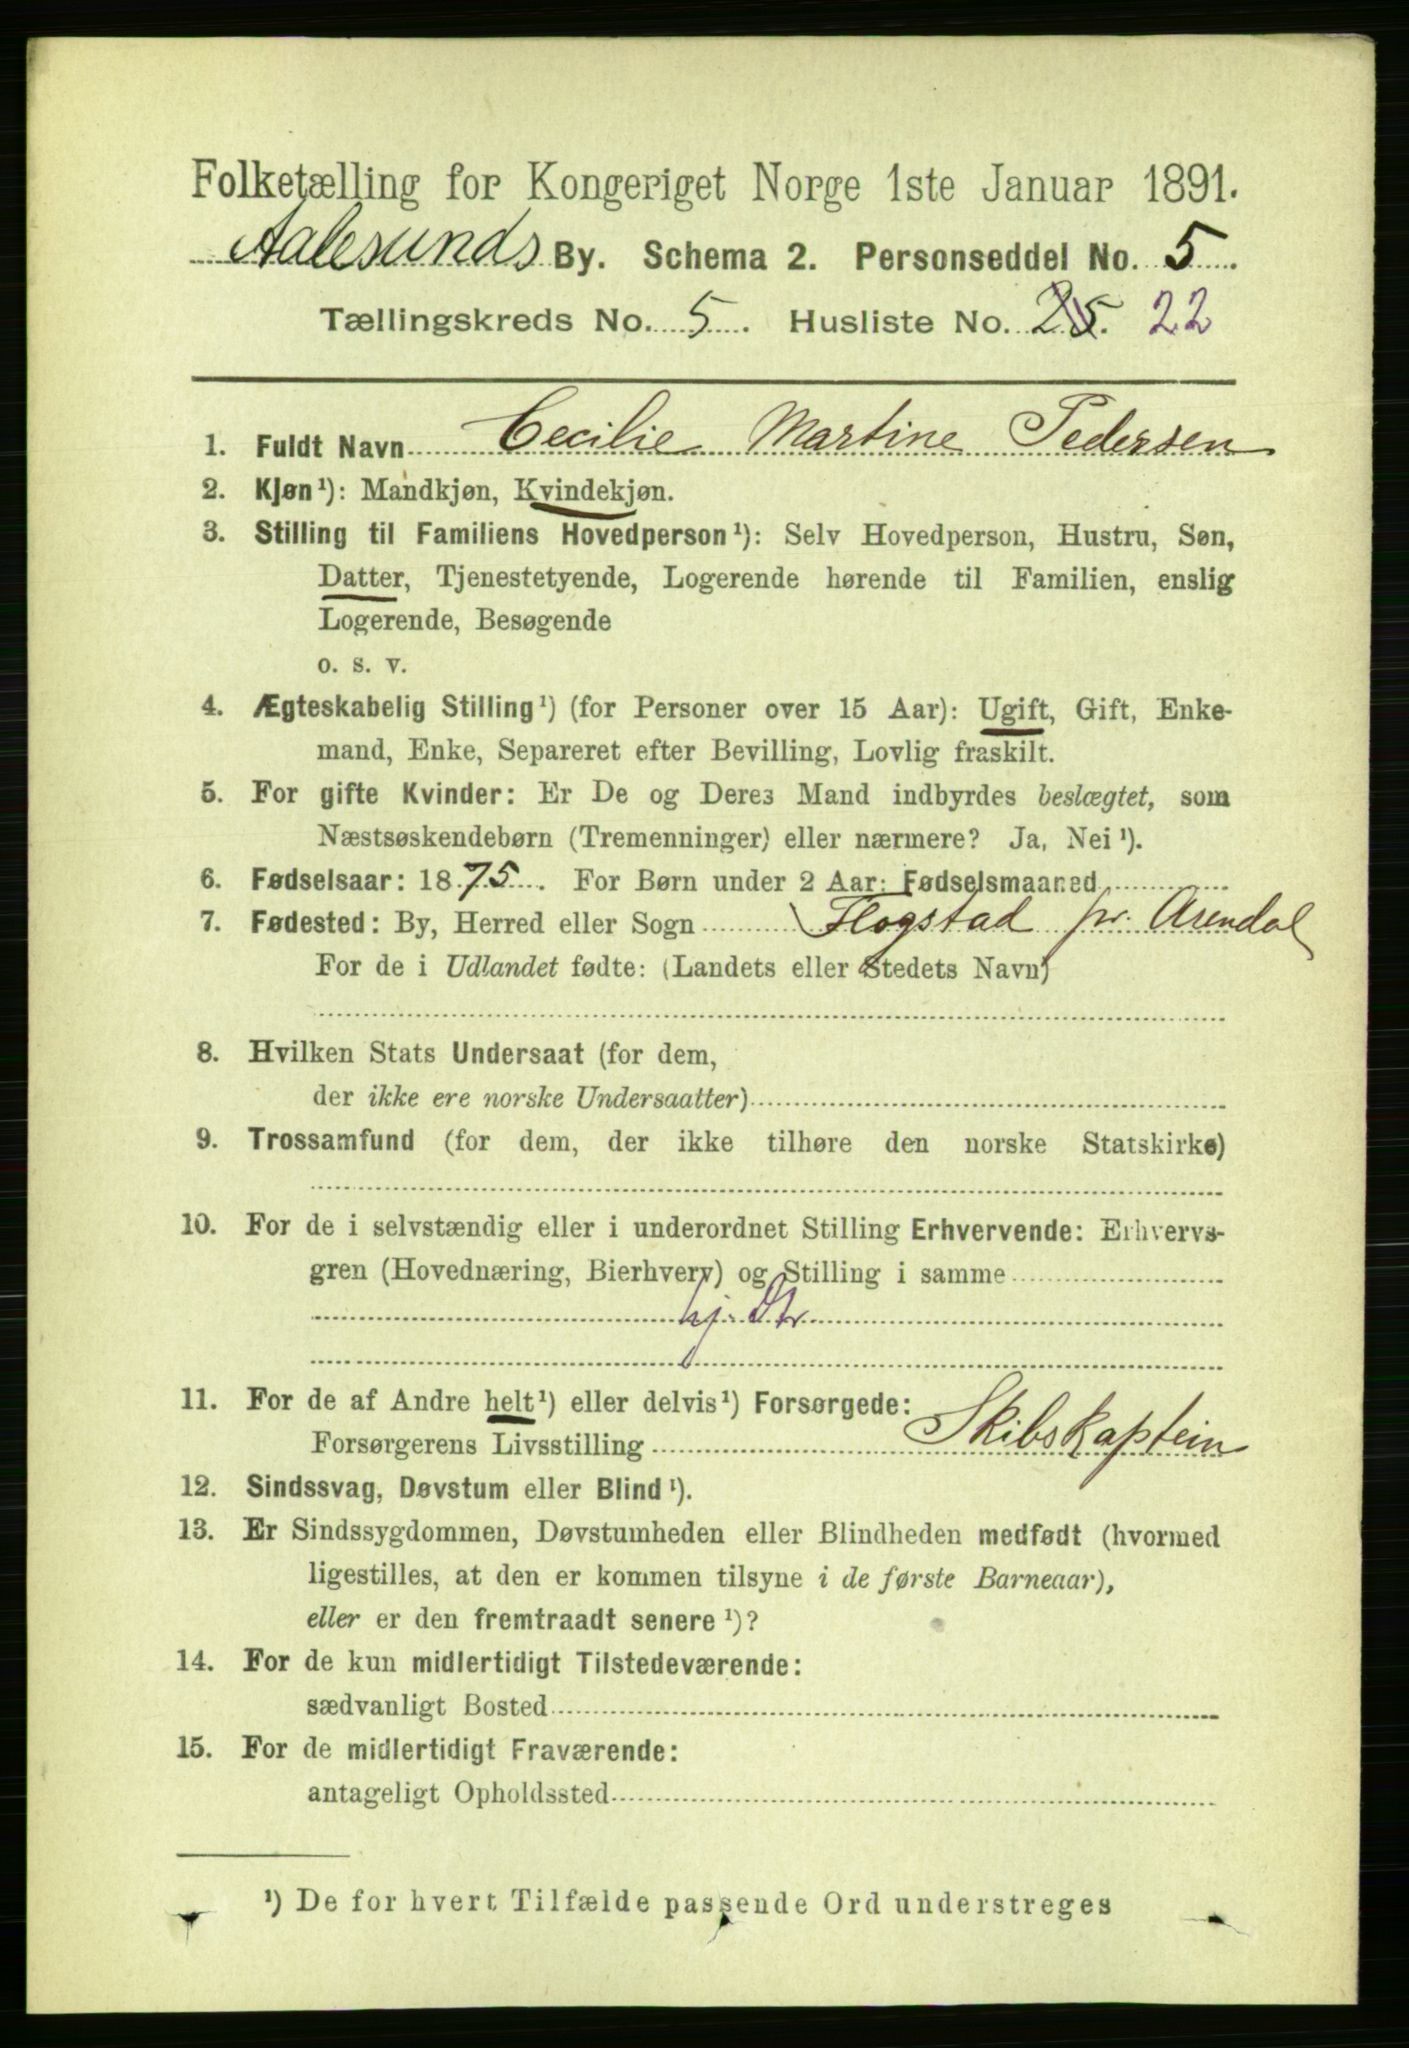 Folketælling for Kongeriget Norge 1ste Januar 1891.
Aalesunds By. Schema 2. Personseddel No. 5.
Tællingskreds No. 5. Husliste No. 25. 22
1. Fuldt Navn Cecilie Martine Pedersen
2. Kjøn¹): Mandkjøn, Kvindekjøn.
3. Stilling til Familiens Hovedperson¹): Selv Hovedperson, Hustru, Søn,
Datter, Tjenestetyende, Logerende hørende til Familien, enslig
Logerende, Besøgende
o. s. v.
4. Ægteskabelig Stilling¹) (for Personer over 15 Aar): Ugift, Gift, Enke-
mand, Enke, Separeret efter Bevilling, Lovlig fraskilt.
5. For gifte Kvinder: Er De og Deres Mand indbyrdes beslægtet, som
Næstsøskendebørn (Tremenninger) eller nærmere? Ja, Nei¹).
6. Fødselsaar: 1875. For Børn under 2 Aar: Fødselsmaaned
7. Fødested: By, Herred eller Sogn Flogstad pr. Arendal
For de i Udlandet fødte: (Landets eller Stedets Navn)
8. Hvilken Stats Undersaat (for dem,
der ikke ere norske Undersaatter)
9. Trossamfund (for dem, der ikke tilhøre den norske Statskirke)
10. For de i selvstændig eller i underordnet Stilling Erhvervende: Erhvervs-
gren (Hovednæring, Bierhverv) og Stilling i samme
hj. Str
11. For de af Andre helt¹) eller delvis¹) Forsørgede:
Forsørgerens Livsstilling Skibskaptein
12. Sindssvag, Døvstum eller Blind¹).
13. Er Sindssygdommen, Døvstumheden eller Blindheden medfødt (hvormed
ligestilles, at den er kommen tilsyne i de første Barneaar),
eller er den fremtraadt senere¹)?
14. For de kun midlertidigt Tilstedeværende:
sædvanligt Bosted
15. For de midlertidigt Fraværende:
antageligt Opholdssted
¹) De for hvert Tilfælde passende Ord understreges